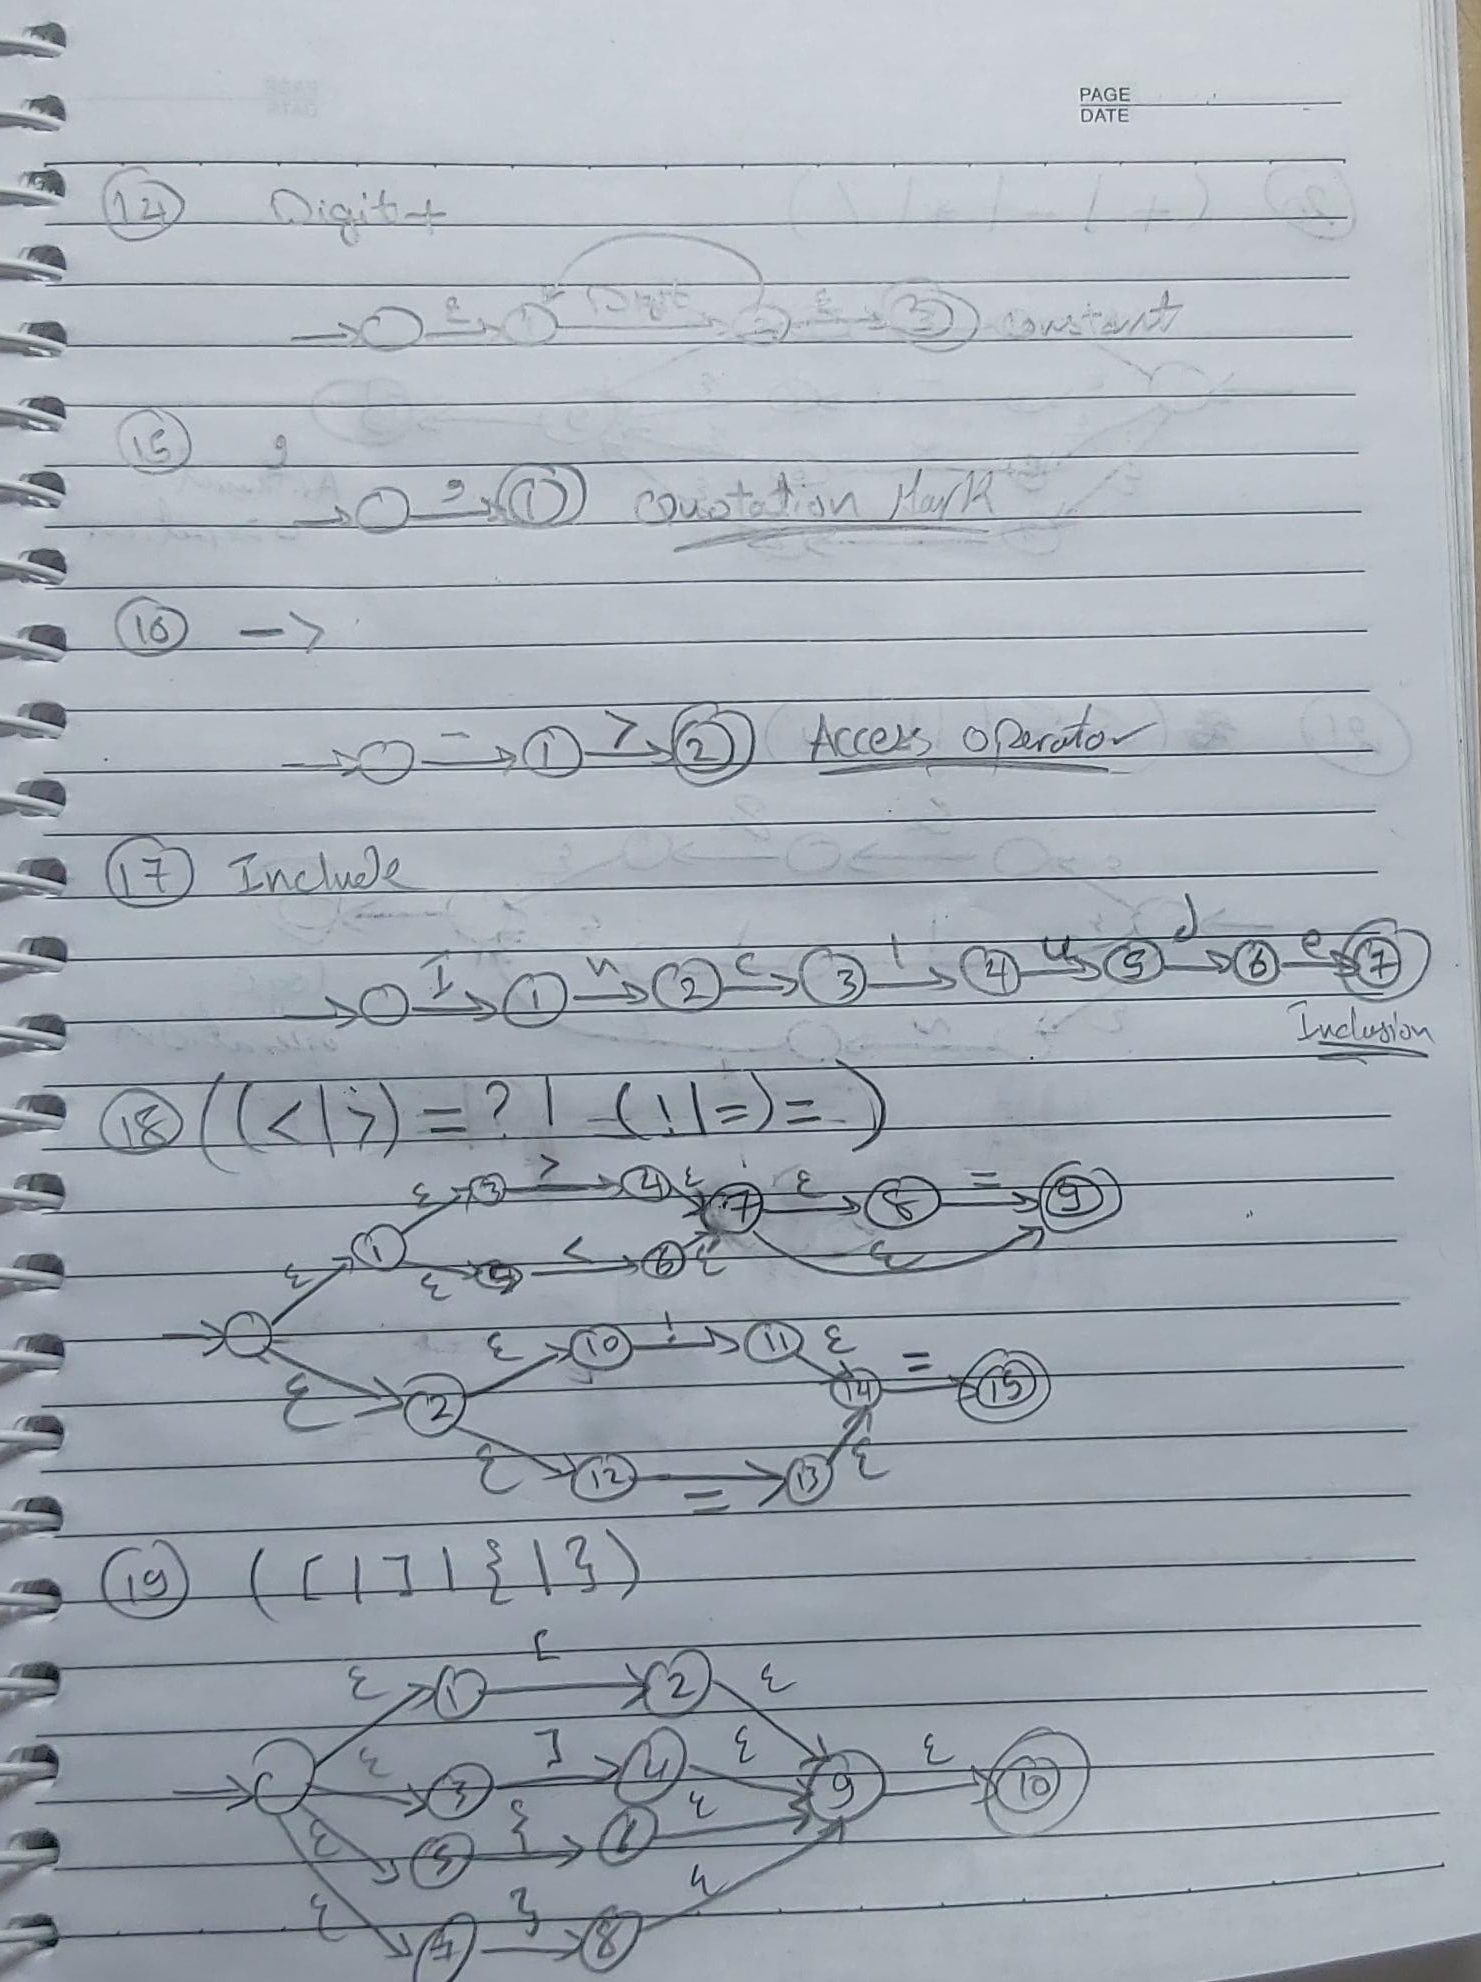 PAGE
DATE
14 Digit+
ε 1 Digit 2 ε 3 constant
15 ,
, 1 Quotation Mark
16 ->
- 1 > 2 Access operator
17 Include
I 1 n 2 c 3 l 4 u 5 d 6 e 7
Inclusion
18 ((<|>)=?| (!|=)=)
ε 3 > 4 ε 7 ε 8 = 9
ε 1 ε 5 < 6 ε ε
ε 10 ! 11 ε
ε 2 14 = 15
ε 12 = 13 ε
19 ([|]|{|})
ε 1 [ 2 ε
ε 3 ] 4 ε 9 ε 10
ε 5 { ε
ε 7 } 8 ε